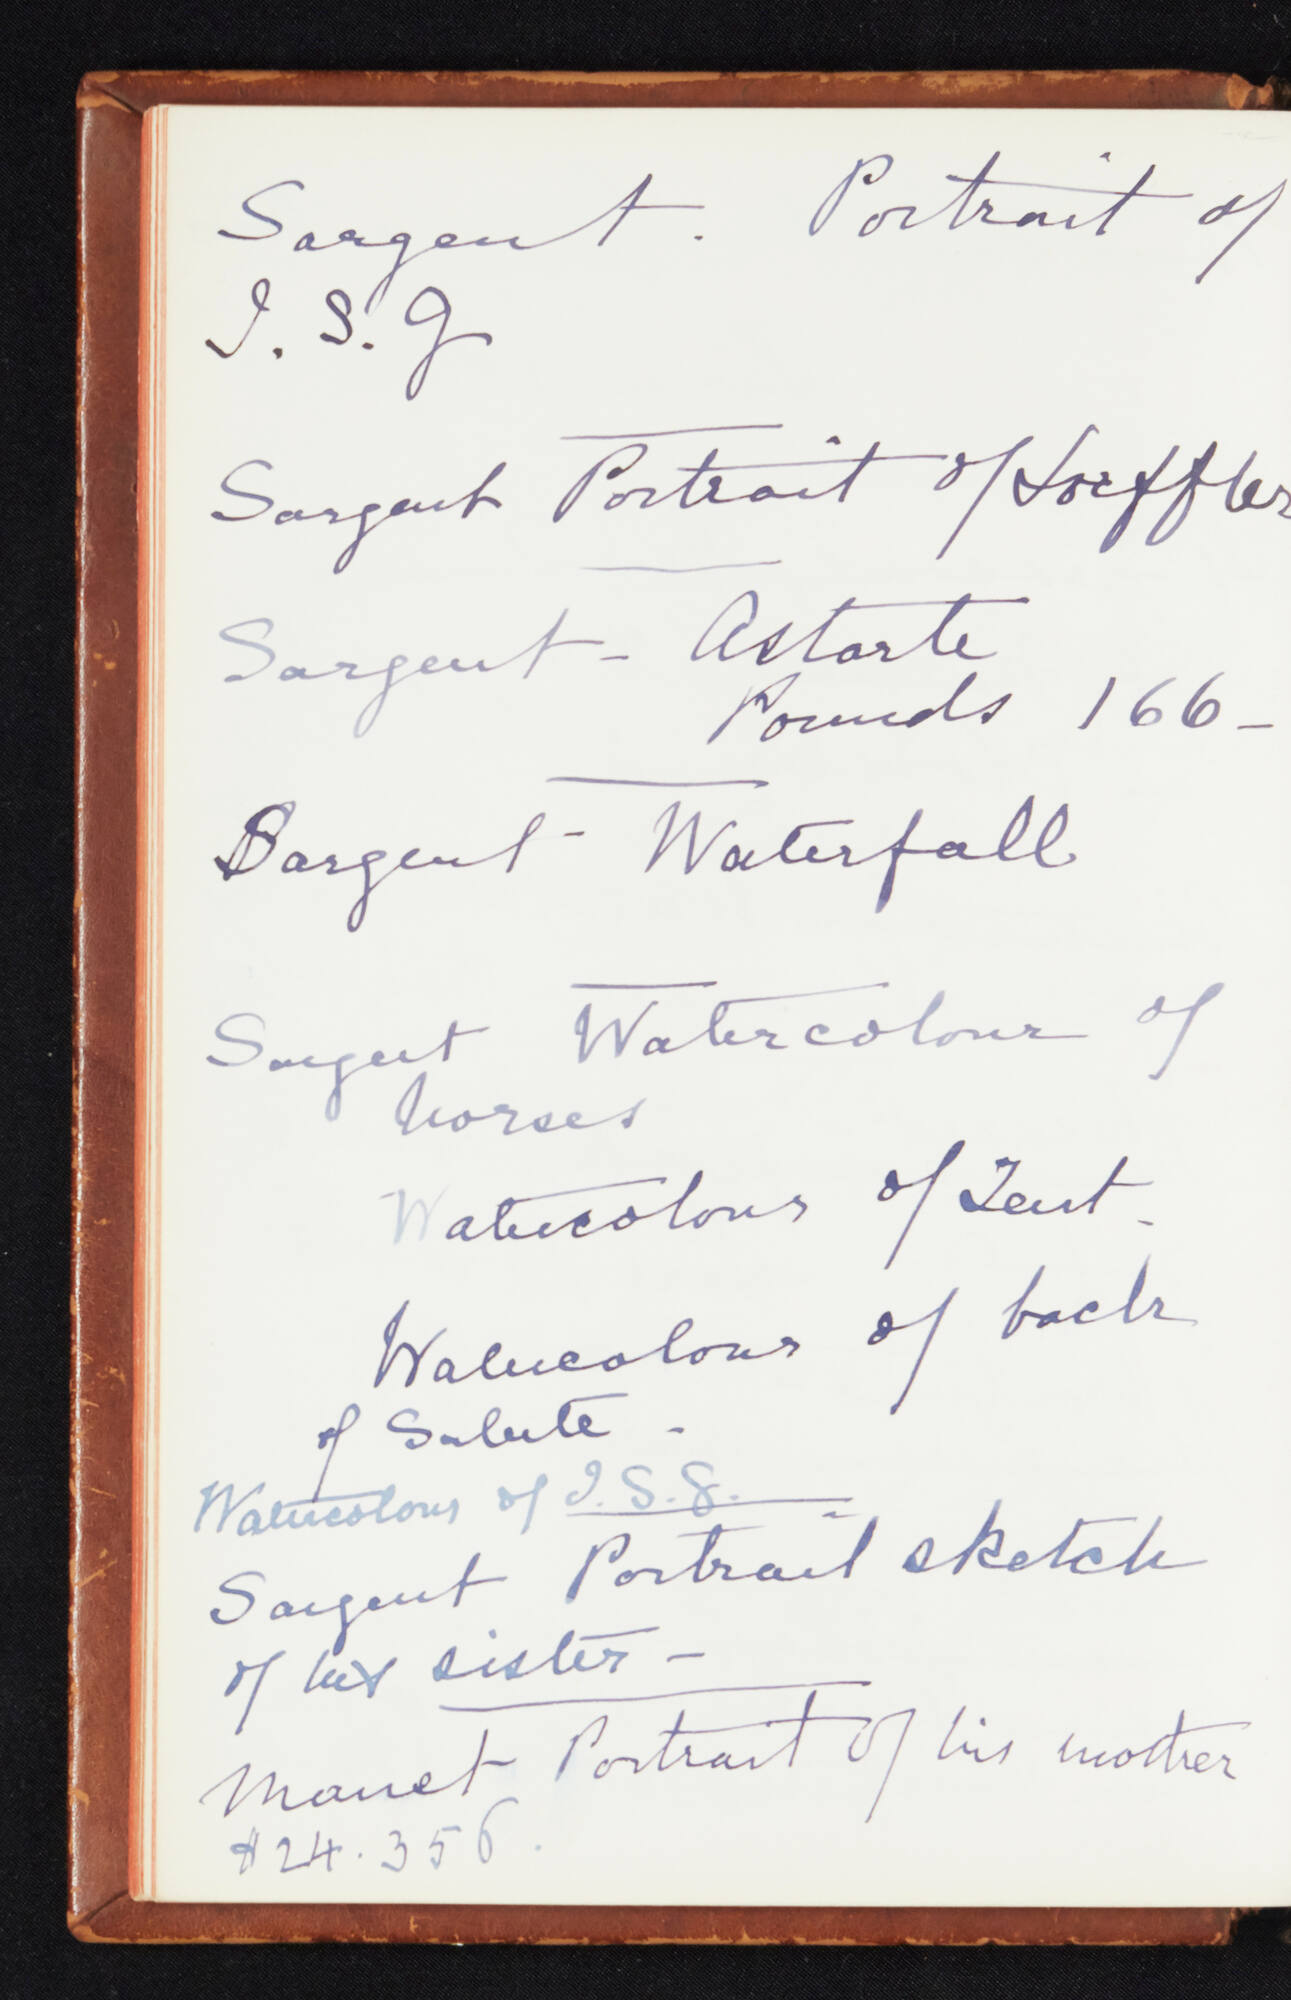 Sargent. Portrait of
I. S. G
Sargent Portrait of Loeffler
Sargent - Astarte
Pounds 166-
Sargent - Waterfall
Sargent Watercolour of
horses
Watercolour of Tent -
Watercolour of back
of Salute -
Watercolour of I. S. G.
Sargent Portrait sketch
of his sister -
Manet Portrait of his mother
$24.356.